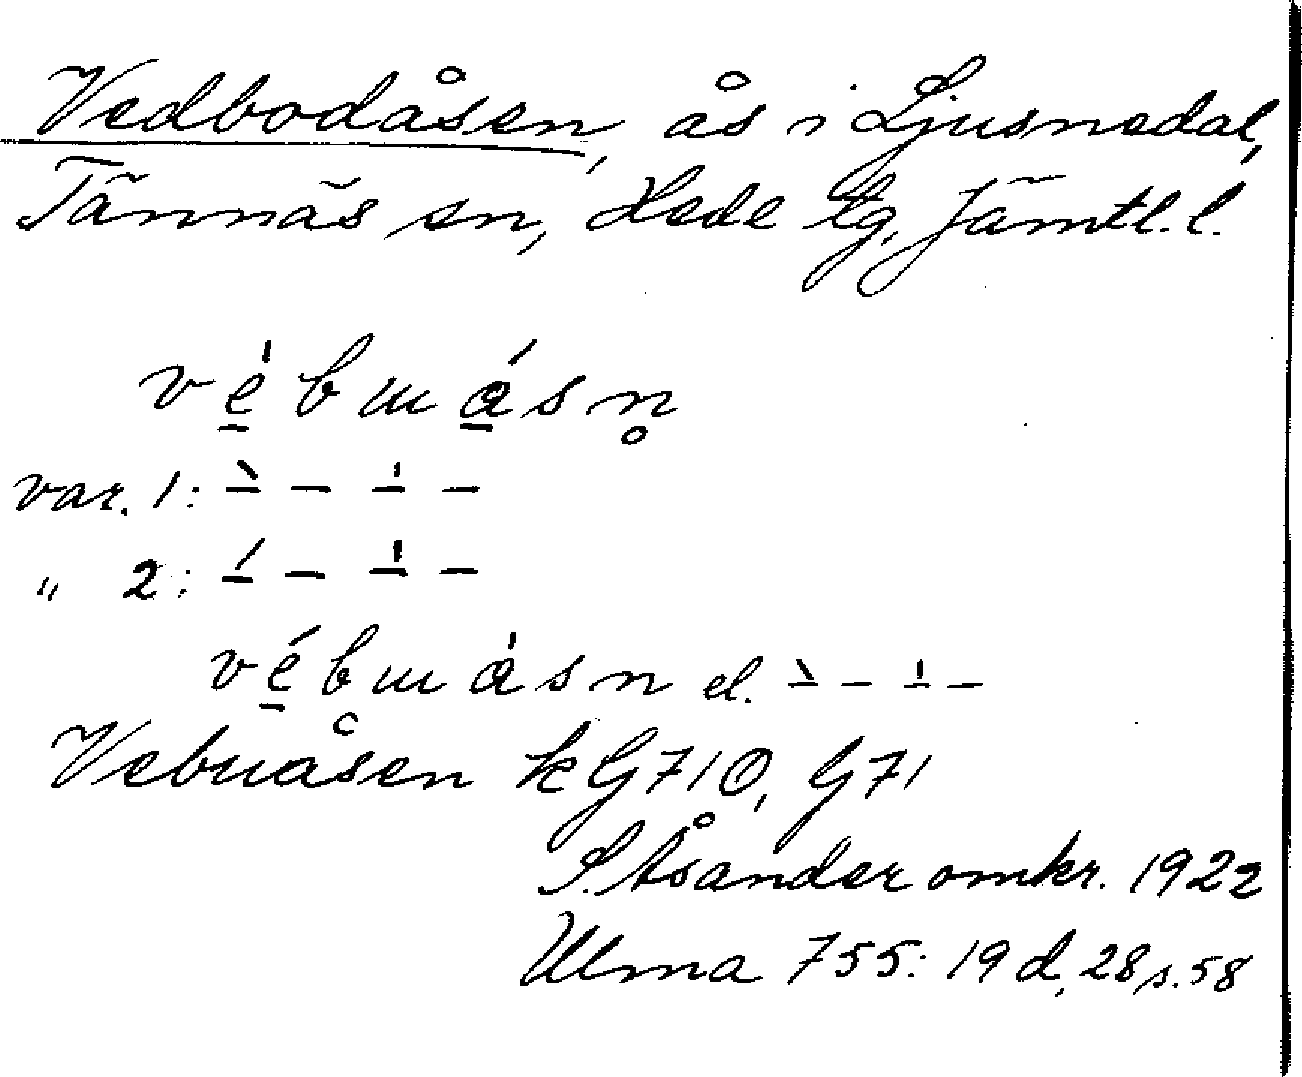 Vedbodåsen, ås i Ljusnedal,
Tännäs sn, Hede tg, Jämtl. l.
vébɯásn̥
var. 1: – – – –
" 2: – – – –
vébɯásn el. – – – –
Vebuåsen kG710, G71
S. Åsander omkr. 1922
Ulma 755: 19 d, 28 s. 58